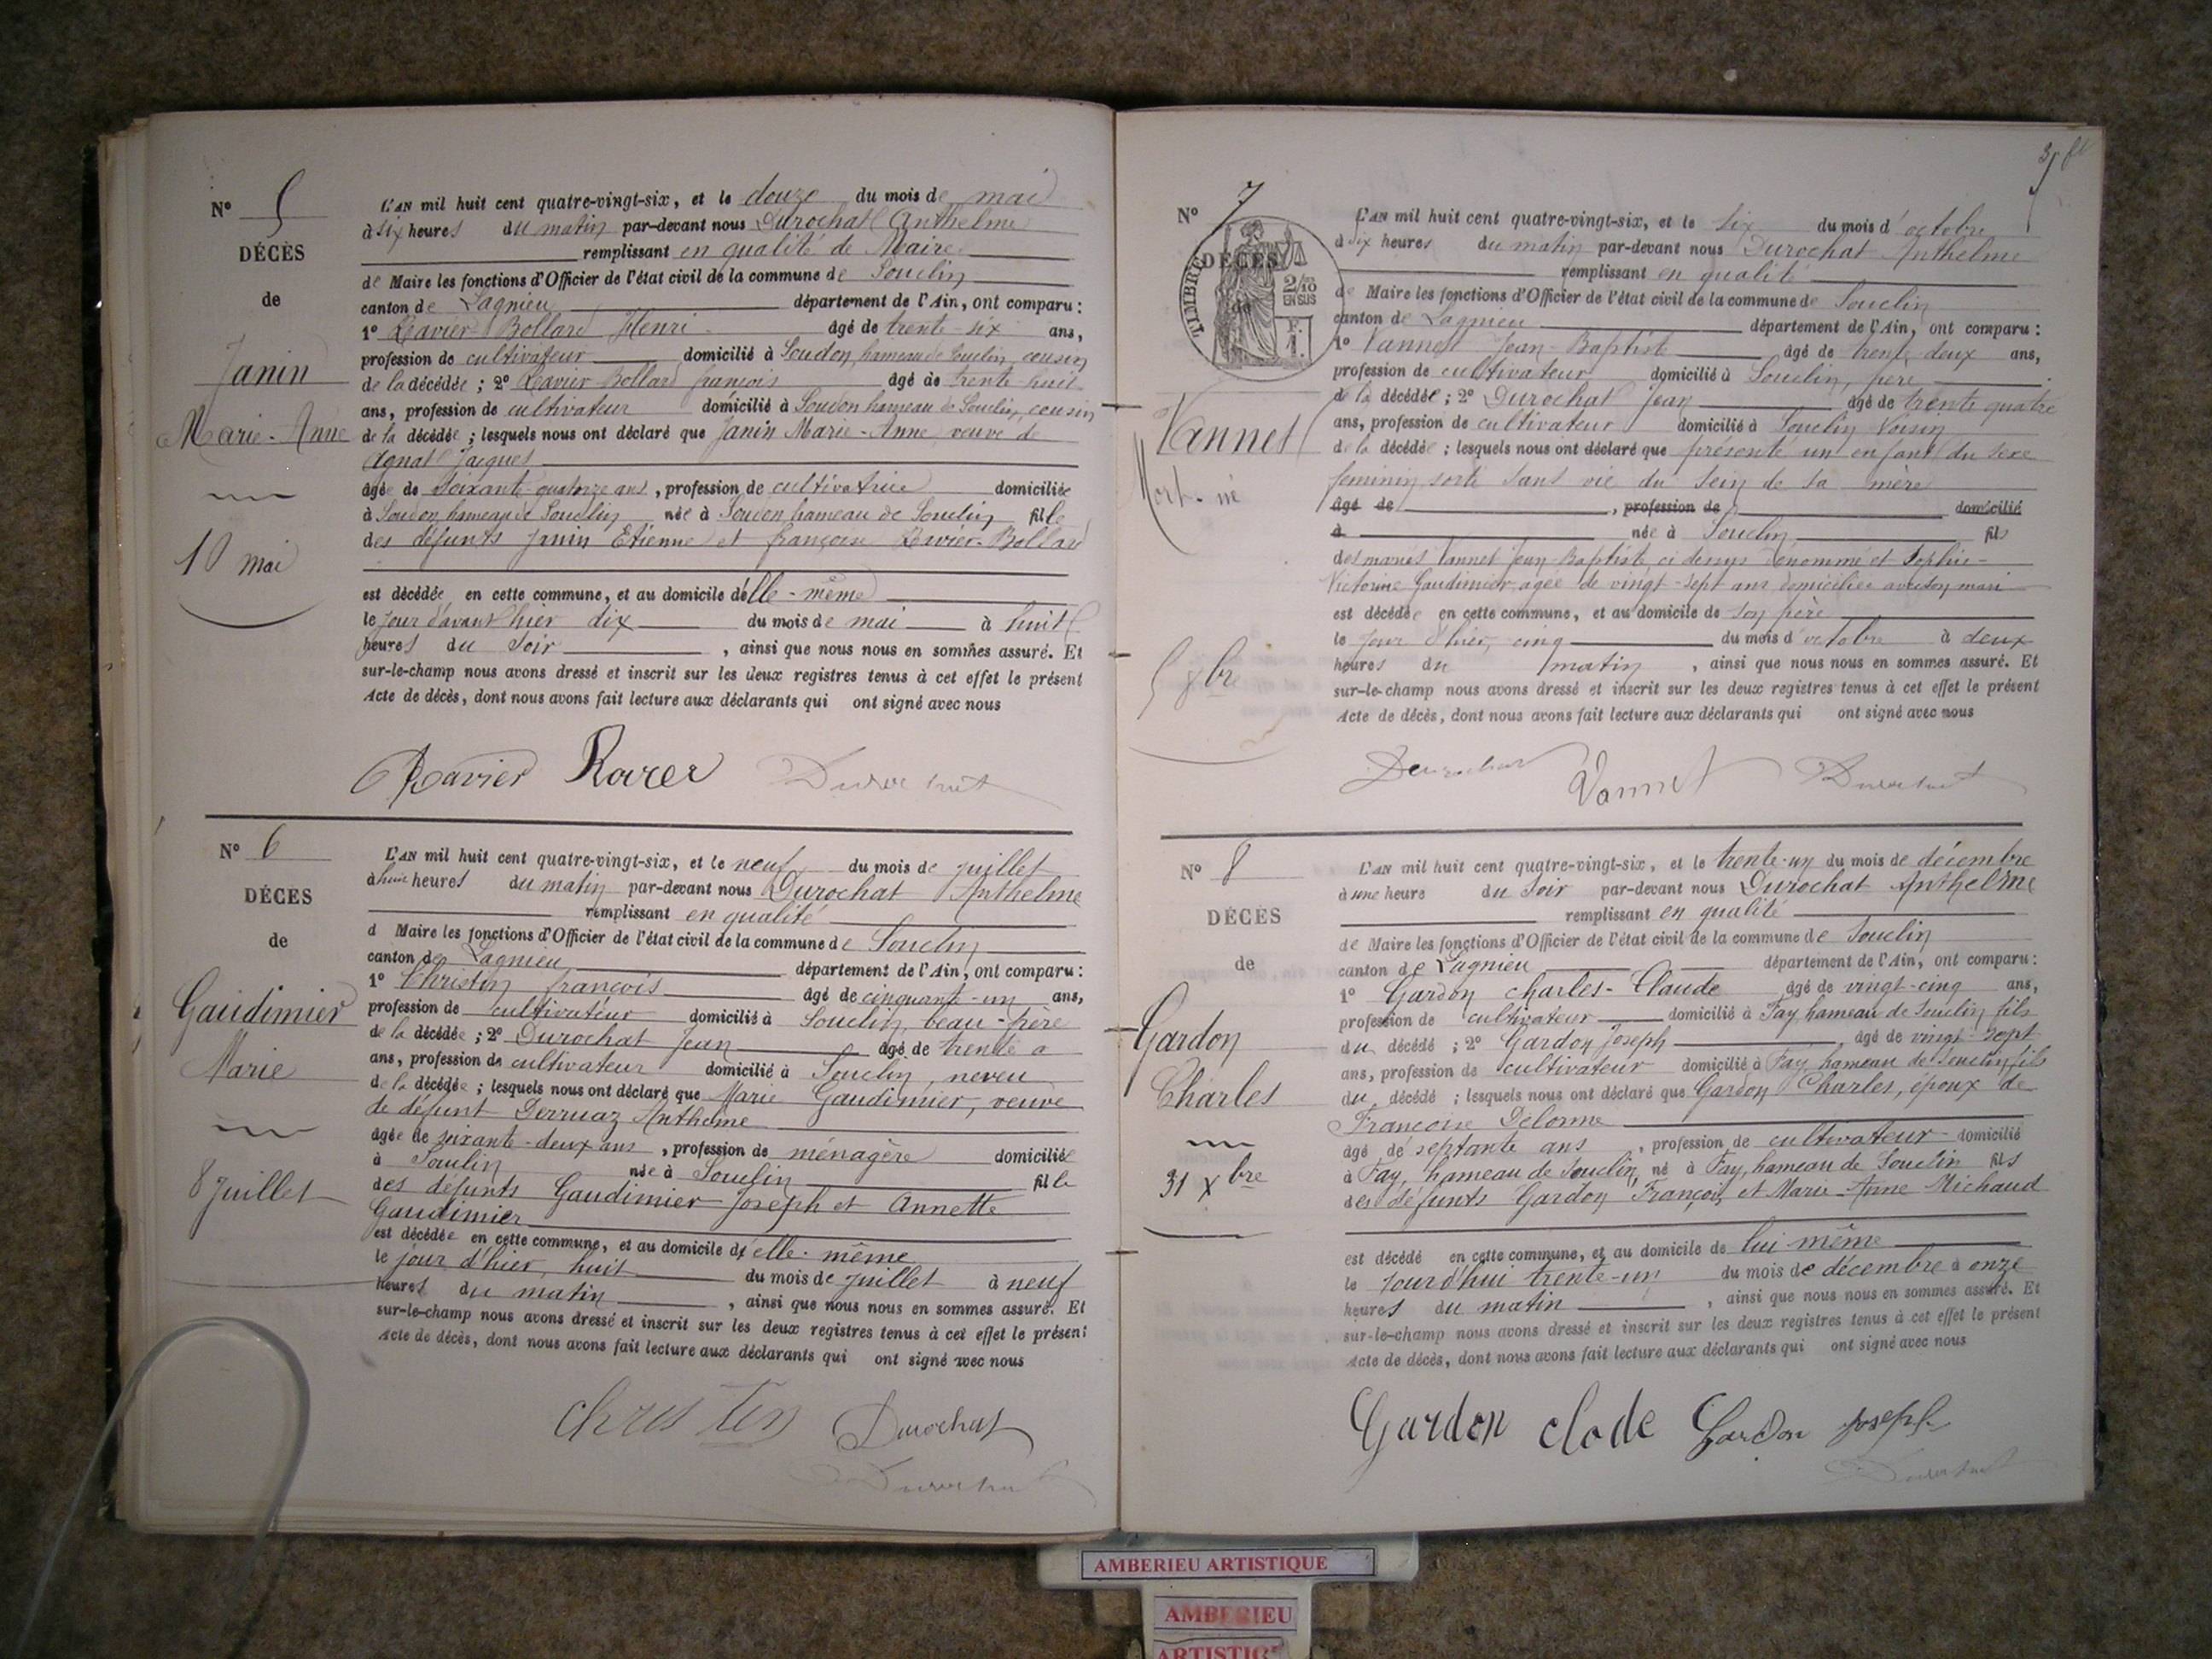 N° 5
DÉCÈS
de
Janin
Marie-Anne
10 mai
L'AN mil huit cent quatre-vingt-six, et le douze du mois de mai
à six heures du matin par-devant nous Durochat Anthelme
remplissant en qualité de Maire
de Maire les fonctions d'Officier de l'état civil de la commune de Souclin
canton de Lagnieu département de l'Ain, ont comparu :
1° Ravier Bollard Henri âgé de trente-six ans,
profession de cultivateur domicilié à Soudon, hameau de Souclin, cousin
de la décédée ; 2° Ravier Bollard françois âgé de trente-huit
ans, profession de cultivateur domicilié à Soudon hameau de Souclin, cousin
de la décédée ; lesquels nous ont déclaré que Janin Marie-Anne, veuve de
Jacques
âgée de soixante quatorze ans, profession de cultivatrice domiciliée
à Soudon, hameau de Souclin née à Soudon hameau de Souclin fille
des défunts Janin Etienne et françoise Ravier-Bollard
est décédée en cette commune, et au domicile d'elle-même
le jour d'avant hier dix du mois de mai à huit
heures du soir , ainsi que nous nous en sommes assuré. Et
sur-le-champ nous avons dressé et inscrit sur les deux registres tenus à cet effet le présent
Acte de décès, dont nous avons fait lecture aux déclarants qui ont signé avec nous
Ravier Durochat
N° 6
DÉCÈS
de
Gaudimier
Marie
8 Juillet
L'AN mil huit cent quatre-vingt-six, et le neuf du mois de juillet
à huit heures du matin par-devant nous Durochat Anthelme
remplissant en qualité
d Maire les fonctions d'Officier de l'état civil de la commune de Souclin
canton de Lagnieu département de l'Ain, ont comparu :
1° Christin françois âgé de cinquante-un ans,
profession de cultivateur domicilié à Souclin, beau-frère
de la décédée ; 2° Durochat Jean âgé de trente
ans, profession de cultivateur domicilié à Souclin, neveu
de la décédée ; lesquels nous ont déclaré que Marie Gaudimier, veuve
de défunt Derruaz Anthelme
âgée de soixante-deux ans , profession de ménagère domiciliée
à Souclin née à Souclin fille
des défunts Gaudimier Joseph et Annette
Gaudimier
est décédée en cette commune, et au domicile d'elle-même
le jour d'hier, huit du mois de juillet à neuf
heures du matin , ainsi que nous nous en sommes assuré. Et
sur-le-champ nous avons dressé et inscrit sur les deux registres tenus à cet effet le présent
Acte de décès, dont nous avons fait lecture aux déclarants qui ont signé avec nous
Christin Durochat
Durochat
N° 7
TIMBRE
2/10
EN SUS
F.
1.
DÉCÈS
de
Vannet
Mort-né
5 8bre
L'AN mil huit cent quatre-vingt-six, et le six du mois d'octobre
à six heures du matin par-devant nous Durochat Anthelme
remplissant en qualité
de Maire les fonctions d'Officier de l'état civil de la commune de Souclin
canton de Lagnieu département de l'Ain, ont comparu :
1° Vannet Jean-Baptiste âgé de trente deux ans,
profession de cultivateur domicilié à Souclin, père
de la décédée ; 2° Durochat Jean âgé de trente quatre
ans, profession de cultivateur domicilié à Souclin Voisin
de la décédée ; lesquels nous ont déclaré que présenté un enfant du sexe
feminin sorti sans vie du sein de sa mère
âgé de , profession de domicilié
à née à Souclin fils
des mariés Vannet Jean-Baptiste ci dessus dénommé et Sophie-
Victorine Gaudimier agée de vingt-sept ans domiciliée avec son mari
est décédée en cette commune, et au domicile de son père
le jour d'hier, cinq du mois d'octobre à deux
heures du matin , ainsi que nous nous en sommes assuré. Et
sur-le-champ nous avons dressé et inscrit sur les deux registres tenus à cet effet le présent
Acte de décès, dont nous avons fait lecture aux déclarants qui ont signé avec nous
Durochat Vannet Durochat
N° 8
DÉCÈS
de
Gardon
Charles
31 Xbre
L'AN mil huit cent quatre-vingt-six, et le trente-un du mois de décembre
à une heure du soir par-devant nous Durochat Anthelme
remplissant en qualité
de Maire les fonctions d'Officier de l'état civil de la commune de Souclin
canton de Lagnieu département de l'Ain, ont comparu :
1° Gardon Charles-Claude âgé de vingt-cinq ans,
profession de cultivateur domicilié à Fay, hameau de Souclin, fils
du décédé ; 2° Gardon Joseph âgé de vingt-sept
ans, profession de cultivateur domicilié à Fay, hameau de Souclin, fils
du décédé ; lesquels nous ont déclaré que Gardon Charles, époux de
Françoise Delorme
âgé de septante ans , profession de cultivateur domicilié
à Fay, hameau de Souclin, né à Fay, hameau de Souclin fils
des défunts Gardon François et Marie-Anne Michaud
est décédé en cette commune, et au domicile de lui même
le jourd'hui trente-un du mois de décembre à onze
heures du matin , ainsi que nous nous en sommes assuré. Et
sur-le-champ nous avons dressé et inscrit sur les deux registres tenus à cet effet le présent
Acte de décès, dont nous avons fait lecture aux déclarants qui ont signé avec nous
Gardon clode Gardon Joseph
Durochat
AMBERIEU ARTISTIQUE
AMBERIEU